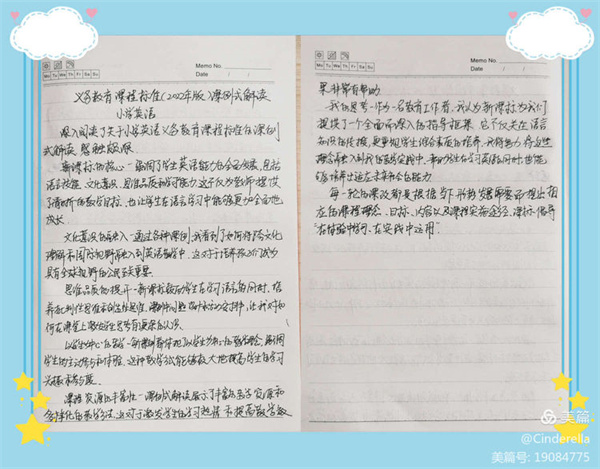 Memo No.
Mo Tu We Th Fr Sa Su
Date / /
义务教育课程标准(2022年版)课例式解读
小学英语
深入阅读了关于小学英语义务教育课程标准的课例
式解读 感触极深
新课标的核心一强调了学生英语能力的全面发展,包括
语言技能、文化意识、思维品质和学习能力 这不仅为教师提供
了清晰的教学目标,也让学生在语言学习中能够更加全面地
成长
文化意识的融入一通过各种课例,我看到了如何将跨文化
理解和国际视野融入到英语教学中,这对于培养孩子们成为
具有全球视野的公民至关重要
思维品质的提升一新课标鼓励学生在学习语言的同时,培
养批判性思维和创造性思维,课例中
何在课堂上激发学生思考有更深的认识
以学生为中心的教学一每一课例都体现了以学生为中心的教学理念,强调
学生的主动参与和体验,这种教学方式能够极大地提高学生的学习
兴趣和参与度
课程资源的丰富性一课例式解读展示了丰富的教学资源和
多样化的教学方法,这对于激发学生的学习热情和提高教学效
Memo No.
Mo Tu We Th Fr Sa Su
Date / /
果非常有帮助
我的思考一作为一名教育工作者,我认为新课标为我们
提供了一个全面而深入的指导框架,它不仅关注语言
知识的传授,更重视学生综合素质的培养,我将努力将这些
理念融入到我的教学实践中,帮助学生在学习英语的同时,也能
够培养出适应未来社会的能力
每一轮的课改都是根据当下形势发展需要而提出相
应的课程理念、目标、内容以及课程实施途径,课标倡导
"在体验中学习、在实践中运用"
美篇
@Cinderella
美篇号: 19084775